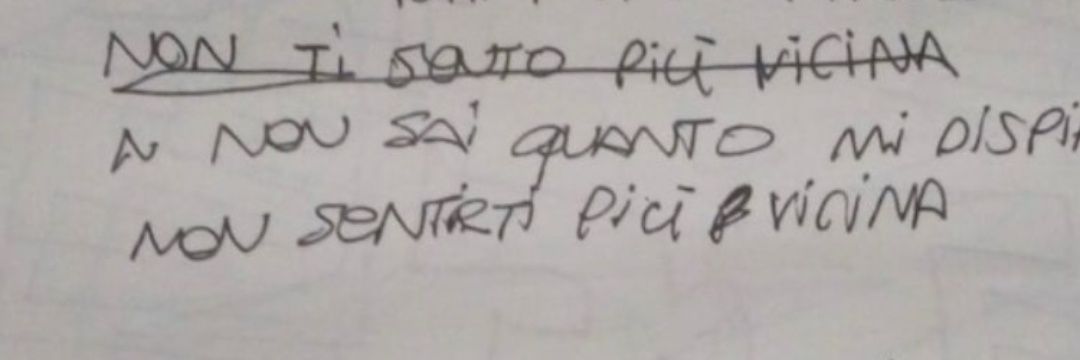 NON TI SENTO PIÙ VICINA
N NON SAI QUANTO MI DISPI
NON SENTIRTI PIÙ VICINA